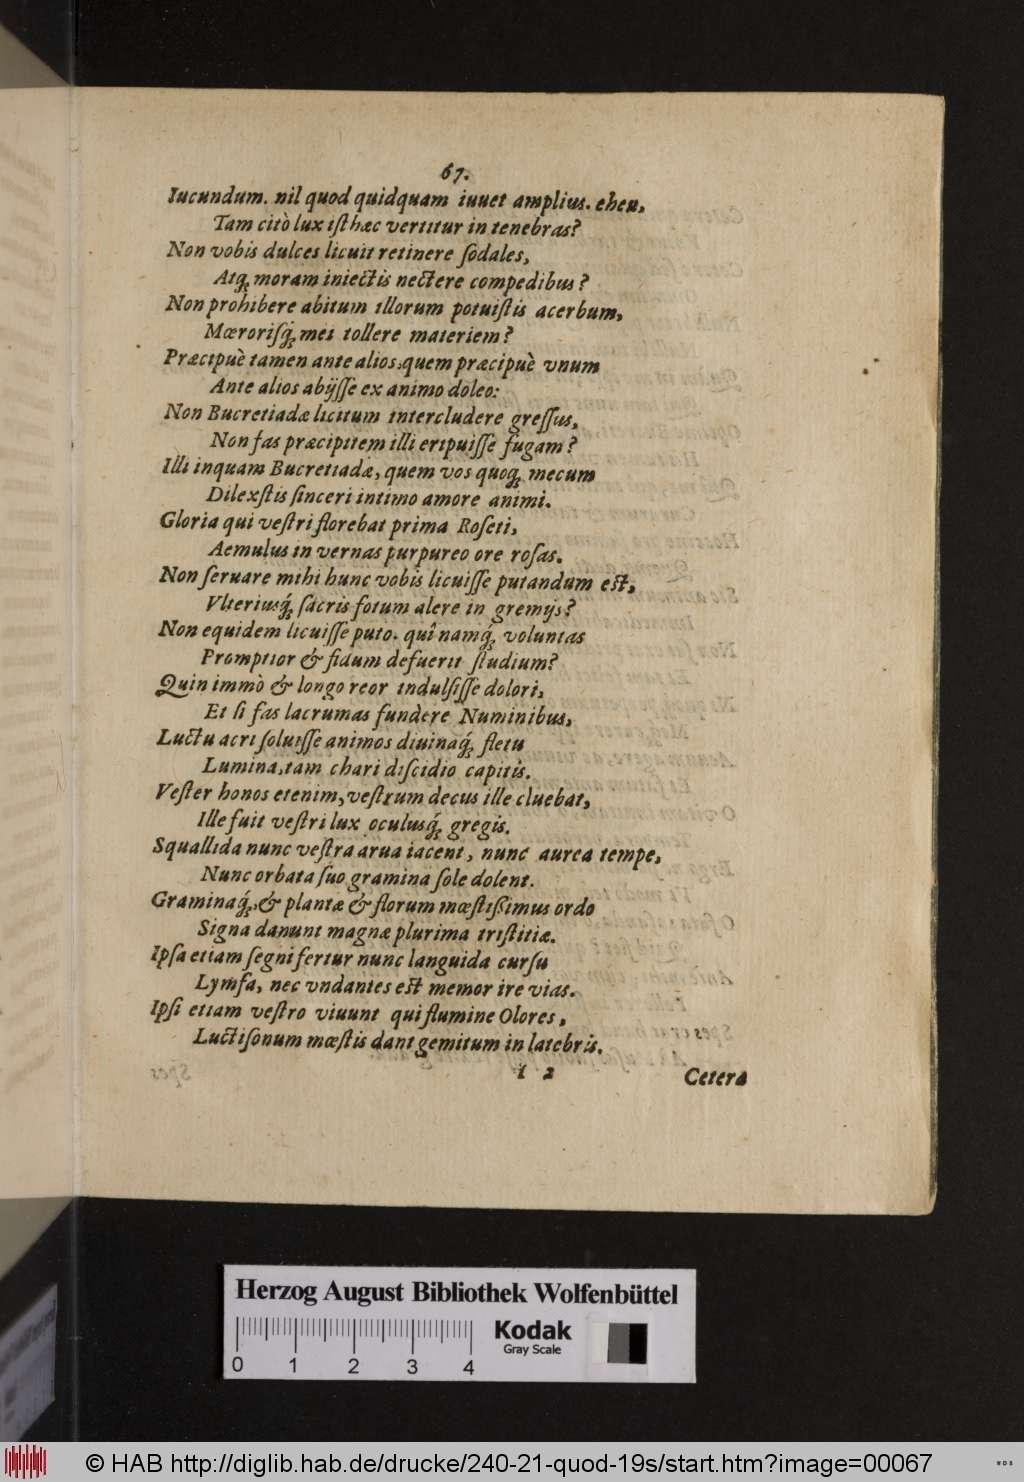 67.
Iucundum. nil quod quidquam iuuet amplius. eheu,
Tam citò lux iſthæc vertitur in tenebras?
Non vobis dulces licuit retinere ſodales,
Atq́; moram iniectis nectere compedibus?
Non prohibere abitum illorum potuiſtis acerbum,
Mœroriſq́; mei tollere materiem?
Præcipuè tamen ante alios, quem præcipuè vnum
Ante alios abijſſe ex animo doleo:
Non Bucretiadæ licitum intercludere greſſus,
Non fas præcipitem illi eripuiſſe fugam?
Illi inquam Bucretiadæ, quem vos quoq́; mecum
Dilexſtis ſinceri intimo amore animi.
Gloria qui veſtri florebat prima Roſeti,
Aemulus in vernas purpureo ore roſas.
Non ſeruare mihi hunc vobis licuiſſe putandum est,
Vlteriusq́; ſacris fotum alere in gremijs?
Non equidem licuiſſe puto. quî namq́; voluntas
Promptior & fidum defuerit ſtudium?
Quin immò & longo reor indulſiſſe dolori,
Et ſi fas lacrumas fundere Numinibus,
Luctu acri ſoluiſſe animos diuinaq́; fletu
Lumina, tam chari diſcidio capitis.
Veſter honos etenim, veſtrum decus ille cluebat,
Ille fuit veſtri lux oculusq́; gregis.
Squallida nunc veſtra arua iacent, nunc aurea tempe,
Nunc orbata ſuo gramina ſole dolent.
Graminaq́;, & plantæ & florum mœſtiſſimus ordo
Signa danunt magnæ plurima triſtitiæ.
Ipſa etiam ſegni fertur nunc languida curſu
Lymfa, nec vndantes est memor ire vias.
Ipſi etiam veſtro viuunt qui flumine Olores,
Luctiſonum mœſtis dant gemitum in latebris.
i 2 Cetera
Herzog August Bibliothek Wolfenbüttel
Kodak
Gray Scale
0 1 2 3 4
© HAB http://diglib.hab.de/drucke/240-21-quod-19s/start.htm?image=00067